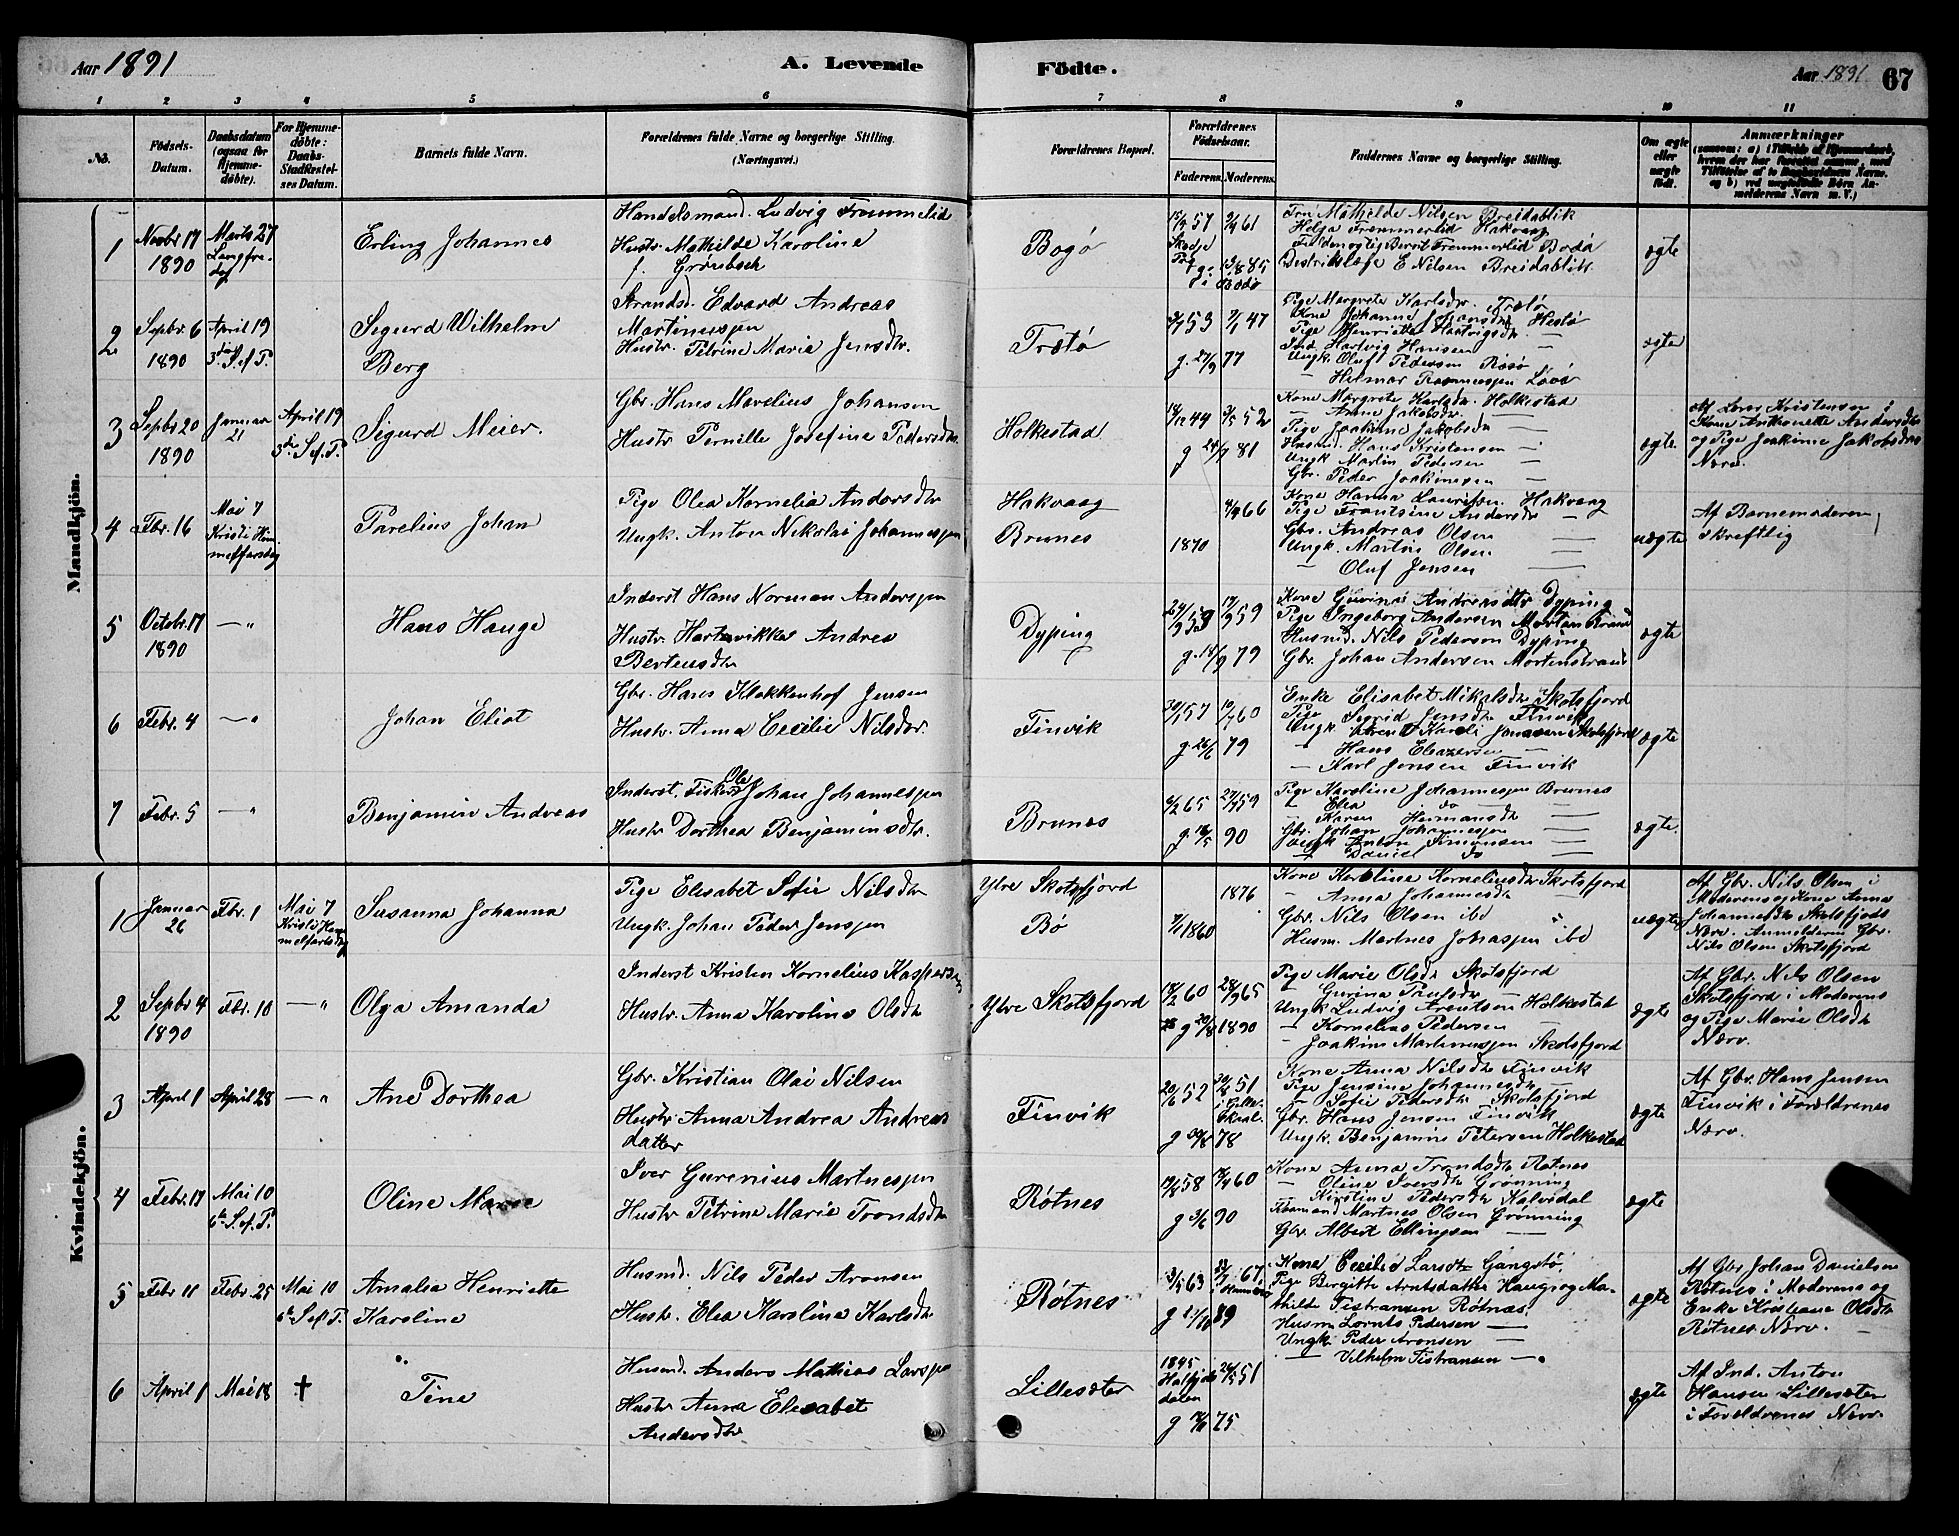 Aar 1891
A. Levende
Födte.
Aar 1891
67
1 2 3 4 5 6 7 8 9 10 11
No.
Födsels-
Datum.
Daabsdatum
(ogsaa for
Hjemme-
döbte).
For Hjemme-
döbte:
Daabs-
Stadfæstel-
ses Datum.
Barnets fulde Navn.
Forældrenes fulde Navne og borgerlige Stilling.
(Næringsvei.)
Forældrenes Bopæl.
Forældrenes
Födselsaar.
Faderens. Moderens.
Faddernes Navne og borgerlige Stilling.
Om ægte
eller
uægte
födt.
Anmærkninger
m. V.)
Mandkjön.
1
Novbr 17
1890
Marts 27
Langfre-
dag
Erling Johannes
Handelsmand. Ludvig Fremmerlid
Hustr. Mathilde Karoline
f. Grønbech
Bogö
15/ 57
61
Fru Mathilde Nilsen Breidablik
Helga Fremmerlid Hakvaag
Berrit Fremmerlid Bodö
Distriktslæge E Nilsen Breidablik
ægte
2
Sepbr 6
1890
April 19
3die S. ef. P.
Sigurd Wilhelm
Berg
Strands. Edvard Andreas
Martinussen
Hustr. Petrine Maria Jensdtr.
Trætö
53
47
g. 27/9 77
Pige Margrete Karlsdtr. Trætö
Kone Johanna Johansdtr Hestö
Pige Henriette Hartvigsdtr —
Ind. Hartvig Hansen —
Ungk. Oluf Pedersen Rösö
— Hilmar Rasmussen Lövö
ægte
3
Sepbr 20
1890
Januar
21
April 19
3die S. ef. P.
Sigurd Meier.
Gbr. Hans Marelius Johansen
Hustr Pernille Josefine Pedersdtr
Holkestad
44
52
g 81
Kone Margrete Karlsdtr. Holkestad
— Anne Jakobsdtr. —
Pige Joakime Jakobsdtr —
Husmd. Hans Kristensen —
Ungk Martin Pedersen —
Gbr. Peder Joakimsen —
ægte
Af Lars Kristensen i
Kone Antonette Andersdtr
og Pige Joakime Jakobsdtrs
Nærv.
4
Fbr. 16
Mai 7
Kristi Him-
melfartsdag
Parelius Johan
Pige Olea Kornelia Andersdtr
Ungk. Anton Nikolai Johannessen
Hakvaag
Brunes
66
1870
Kone Hanna Lauritsen Hakvaag
Pige Frantsine Andersdtr —
Gbr. Andreas Olsen —
Ungk. Martin Olsen —
— Oluf Jensen —
uægte
Af Barnemoderen
skreftlig
5
Octobr. 17
1890
— "
Hans Hauge
Inderst Hans Norman Andersen
Hustr. Hartvikka Andrea
Bertensdtr
Dyping
53
59
g. 79
Kone Andreasdtr Dyping
Pige Ingeborg Andersen
Husmd. Nils Pedersen Dyping
Gbr. Johan Andersen Mortenstrand
ægte
6
Febr. 4
— "
Johan Eliot
Gbr. Hans Klokkenhof Jensen
Hustr. Anna Cecilie Nilsdtr.
Finvik
57
60
g. 26/6 79
Enke Elisabet Mikalsdtr Skotsfjord
Pige Sigrid Jensdtr Finvik
Ungk Karoli Jonassen Skotsfjord
— Hans Eleazersen —
— Karl Jensen Finvik
ægte
7
Febr. 5
— "
Benjamin Andreas
Inderst. Fisker Ole Johan Johannessen
Hustr Dorthea Benjaminsdtr.
Brunes
65
59
g. 90
Pige Karoline Johannessen Brunes
— Elea do —
— Karen Hermansdtr —
Gbr. Johan Johannessen —
Ungk Anton Simonsen —
— Daniel do —
ægte.
Kvindekjön.
1
Januar
26
Fbr. 1
Mai 7
Kristi Him-
melfartsdag
Susanna Johanna
Pige Elisabet Sofie Nilsdtr
Ungk. Johan Peder Jenssen
Ytre Skotsfjord
Bø
1876
1860
Kone Karoline Korneliusdtr Skotsfjord
— Anna Johannesdtr —
Gbr. Nils Olsen ibd "
Husm. Martnes Johassen ibd
uægte
Af Gbr. Nils Olsen i
Moderens og Kone Anna
Johannesdtr Skotsfjords
Nærv. Anmelderen Gbr.
Nils Olsen Skotsfjord
2
Sepbr 4
1890
Fbr. 10
— "
Olga Amanda
Inderst Kristen Kornelius Kaspersen
Hustr. Anna Karoline Olsdtr
Ytre Skotsfjord
60
65
g 1890
Pige Marie Olsdtr Skotsfjord
— Gurina Paulsdtr —
Ungk Ludvig Arentsen Holkestad
— Kornelius Pedersen —
— Joakim Martinussen Skotsfjord
ægte
Af Gbr. Nils Olsen
Skotsfjord i Moderens
og Pige Marie Olsdtr
Nærv.
3
April 1
April 28
— "
Ane Dorthea
Gbr. Kristian Olai Nilsen
Hustr Anna Andrea Andreas
datter
Finvik
52
51
i Gilles-
kaal.
g 78
Kone Anna Nilsdtr Finvik
Pige Jensine Johannesdtr —
— Sofie Pedersdtr Skotsfjord
Gbr. Hans Jensen Finvik
Ungk. Benjamin Petersen Holkestad
ægte
Af Gbr. Hans Jensen
Finvik i Foreldrenes
Nærv.
4
Febr. 17
Mai 10
6te S. ef. P.
Oline Marie
Iver Gurenius Martnessen
Hustr Petrine Marie Trondsdtr
Rötnes
58
60
g 3/6 90
Kone Anna Trondsdtr Rötnes
— Oline Iversdtr Grønning
— Kirstine Pedersdtr Kalvedal
Martnes Olsen Grønning
Gbr. Albert Ellingsen —
ægte
5
Febr 11
Febr. 25
Mai 10
6te S. ef P.
Amalia Henriette
Karoline
Husmd. Nils Peder Aronsen
Hustr. Elea Karoline Karlsdtr
Rötnes
63
67
g 89
Kone Cecilie Larsdtr Gangstö,
Pige Birgitte Arntsdatter Haug og Ma-
thilde Fistransen Rötnæs
Husm Lornts Pedersen —
Ungk Peder Aronsen —
— Vilhelm Fistransen —
ægte
Af Gbr Johan Danielsen
Rötnes i Moderens og
Enke Kristiane Olsdtr
Rötnes Nærv. —
6
April 1
Mai 18
†
Tine
Husmd. Anders Mathias Larssen
Hustr Anna Elesabet
Andersdtr
Lillesæter
1845
dalen
51
g 75
ægte
Af Ind. Anton
Hansen Lillesæter
i Foreldrenes Nærv.